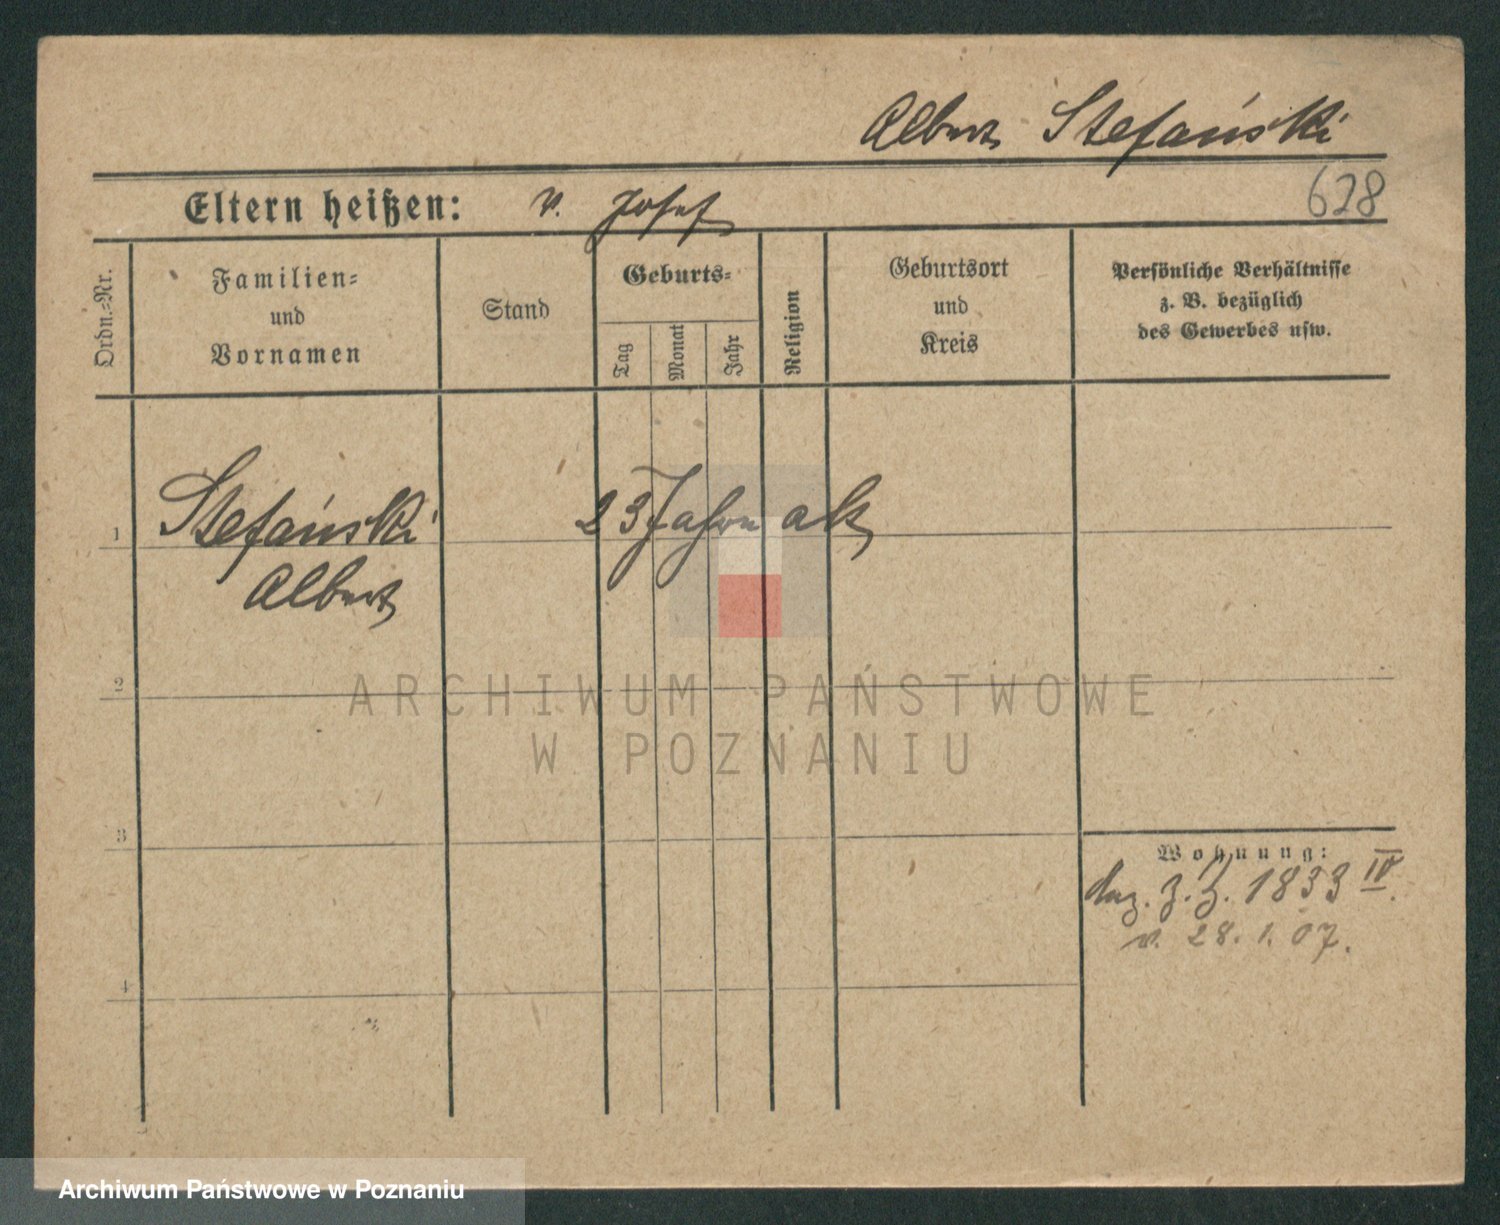 Albert Stefański
Eltern heißen: v. Josef
628
Ordn.-Nr.
Familien-
und
Vornamen
Stand
Geburts-
Tag
Monat
Jahr
Religion
Geburtsort
und
Kreis
Persönliche Verhältnisse
z. B. bezüglich
des Gewerbes usw.
1
Stefański 23 Jahre alt
Albert
2
ARCHIWUM PAŃSTWOWE
W POZNANIU
3
Wohnung:
z. J. 1833 IV.
v. 28.1.07.
4
Archiwum Państwowe w Poznaniu